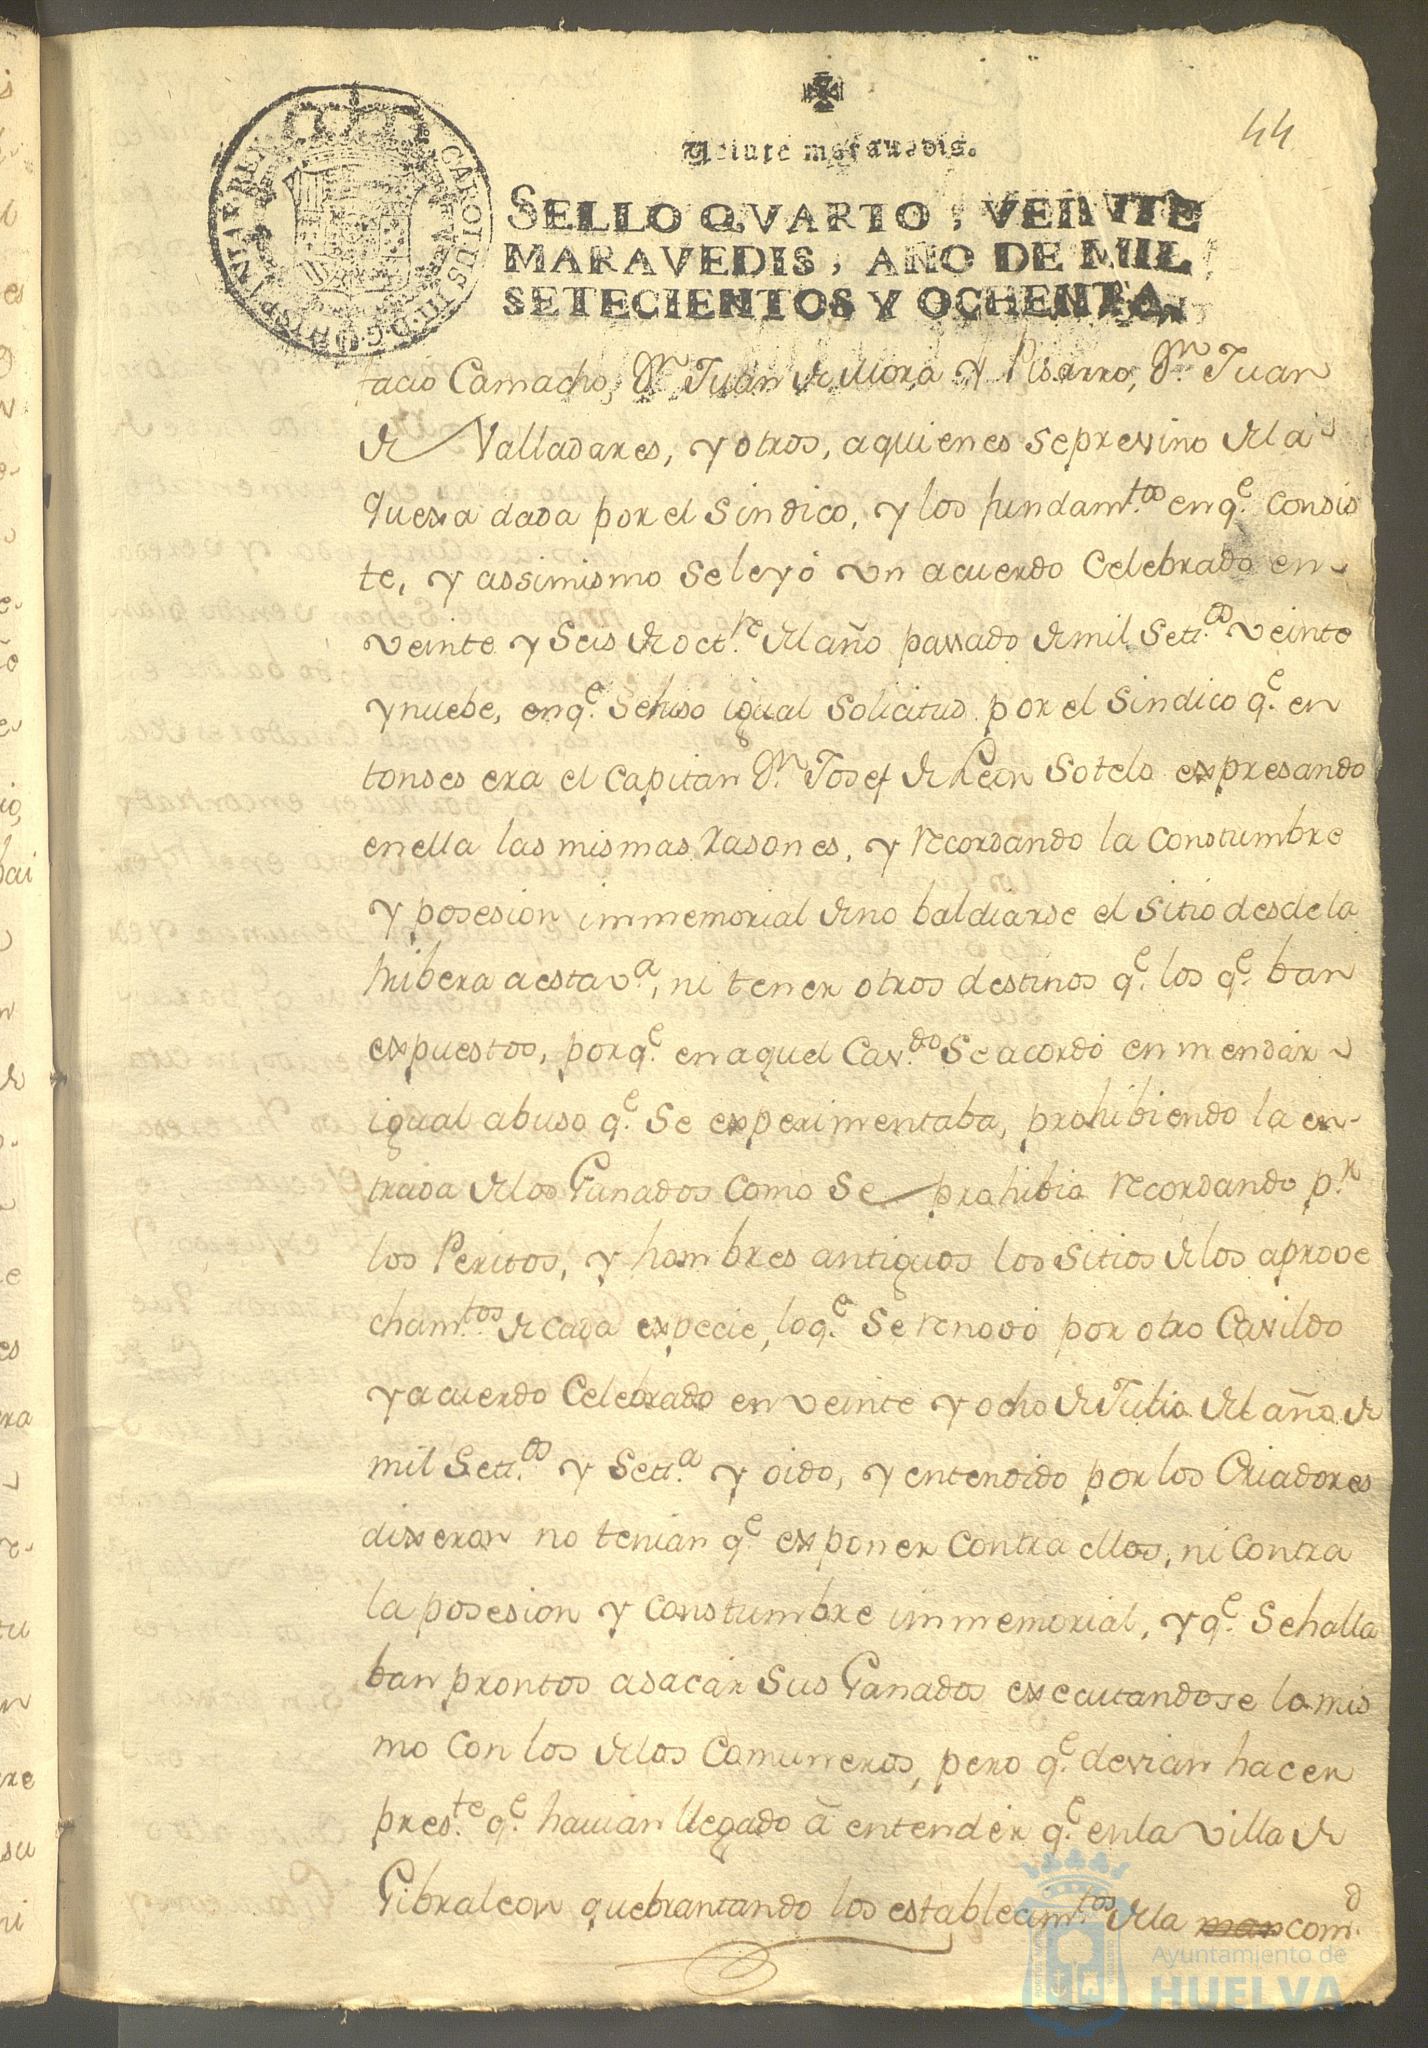 44
Veinte maravedis.
SELLO QVARTO, VEINTE
MARAVEDIS, AÑO DE MIL
SETECIENTOS Y OCHENTA.
CAROLUS III D G HISPANIAR REX
tacio Camacho, Dn. Juan de Mora y Pisarro, Dn. Juan
de Valladares, y otros, a quienes se previno de la
quexa dada por el Sindico, y los fundam.tos en q.e consis
te, y assimismo se leyó vn acuerdo Celebrado en
veinte y Seis de oct.re del año passado de mil Set.os veinte
y nuebe, en q.e Se hiso igual Solicitud por el Sindico q.e en
tonses era el Capitan Dn. Josef de Leon Sotelo expresando
en ella las mismas rasones, y recordando la Constumbre
y posesion immemorial de no baldiarse el Sitio desde la
Ribera a esta v.a, ni tener otros destinos q.e los q.e ban
expuestos, por q.e en aquel Cav.do Se acordó enmendár
igual abuso q.e Se experimentaba, prohibiendo la en-
trada de los Ganados como Se prohibio recordando p.r
los Peritos, y hombres antiguos los Sitios de los aprove
cham.tos de cada expecie, lo q.e Se renovó por otro Cavildo
y acuerdo Celebrado en veinte y ocho de Julio del año de
mil Set.os y Set.a y oido, y entendido por los Criadores
dixeron no tenian q.e exponer contra ellos, ni contra
la posesion y constumbre immemorial, y q.e Se halla
ban prontos a sacár Sus Ganados executandose lo mis
mo con los de los Comuneros, pero q.e devian hacer
pres.te q.e havian llegado á entendér q.e en la villa de
Gibraleon quebrantando los establecim.tos de la man com.d
Ayuntamiento de
HUELVA